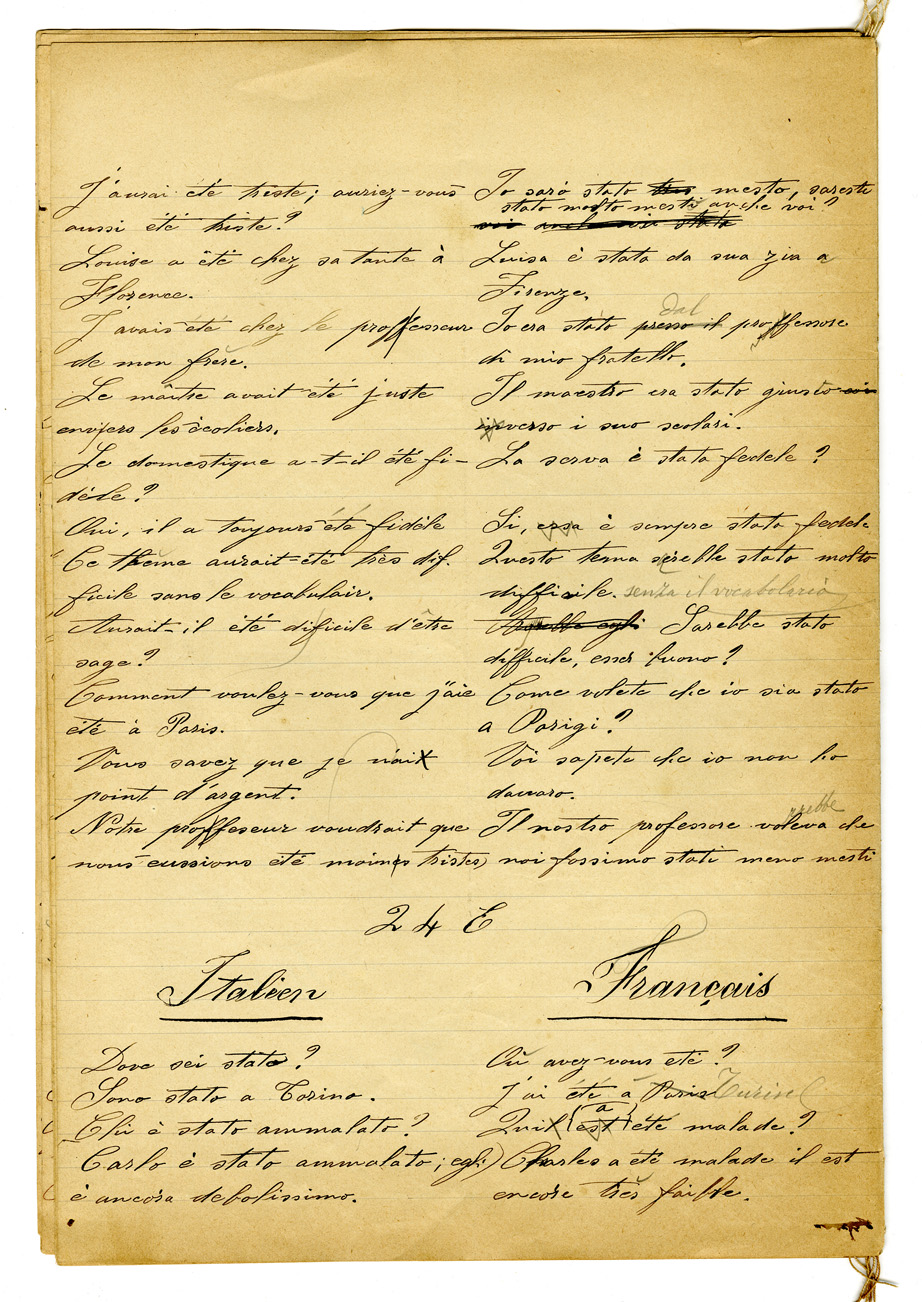 J'aurai été triste; auriez-vous
aussi été triste?
Louise a été chez sa tante à
Florence.
J'avais été chez le professeur
de mon frère.
Le mâitre avait été juste
envers les écoliers.
Le domestique a-t-il été fi-
déle?
Oui, il a toujours été fidéle
Ce thème aurait-été très dif.
ficile sans le vocabulair.
Aurait-il été dificile d'être
sage?
Comment voulez-vous que j'aie
été à Paris.
Vous savez que je n'ai
point d'argent.
Notre proffeseur voudrait que
nous eussions été moins tristes
Io saró stato mesto, sareste
stato molto mesti anche voi?
Luisa è stata da sua zia a
Firenze.
dal
Io era stato presso il proffessore
di mio fratello.
Il maestro era stato giusto
inverso i suo scolari.
La serva è stata fedele?
Si, essa è sempre stata fedele
Questo tema sereble stato molto
difficile. senza il vocabolario
Sarebbe stato
difficile, esser buono?
Come volete che io sia stato
a Parigi?
Voi sapete che io non ho
danaro.
rrebbe
Il nostro professore voleva che
noi fossimo stati meno mesti
24 E
Italien
Français
Dove sei stato?
Sono stato a Torino.
Chi è stato ammalato?
Carlo è stato ammalato; egli
è ancora debolissimo.
Où avez-vous eté?
J'ai été à Paris Turin
a
Qui est été malade?
Charles a été malade il est
encore très faible.